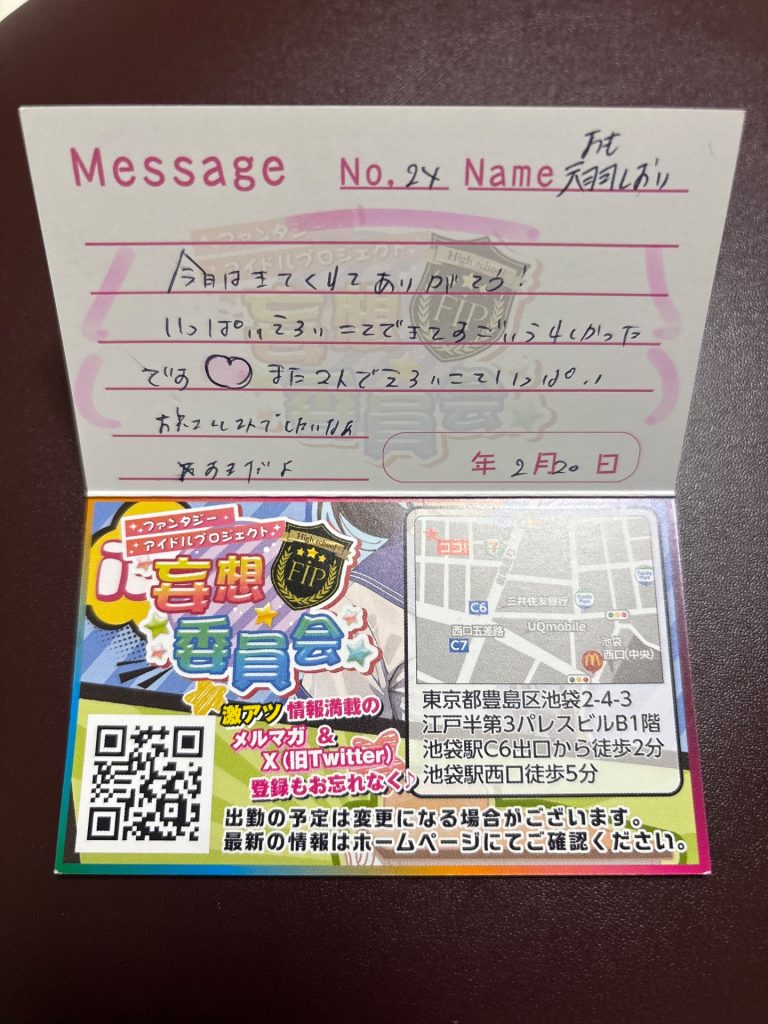 Message No. 24 Name 天羽しおり
あも
今日はきてくれてありがとう!
いっぱいえろいことできてすごいうれしかった
です また2人でえろいこといっぱい
お楽しみでしたいなぁ
年 2月20日
ファンタジー
アイドルプロジェクト
High school
FIP
妄想
委員会
激アツ 情報満載の
メルマガ &
X(旧Twitter)
登録もお忘れなく♪
ココ!
C6
三井住友銀行
Family Mart
西口五差路
C7
UQmobile
池袋
西口(中央)
東京都豊島区池袋2-4-3
江戸半第3パレスビルB1階
池袋駅C6出口から徒歩2分
池袋駅西口徒歩5分
出勤の予定は変更になる場合がございます。
最新の情報はホームページにてご確認ください。